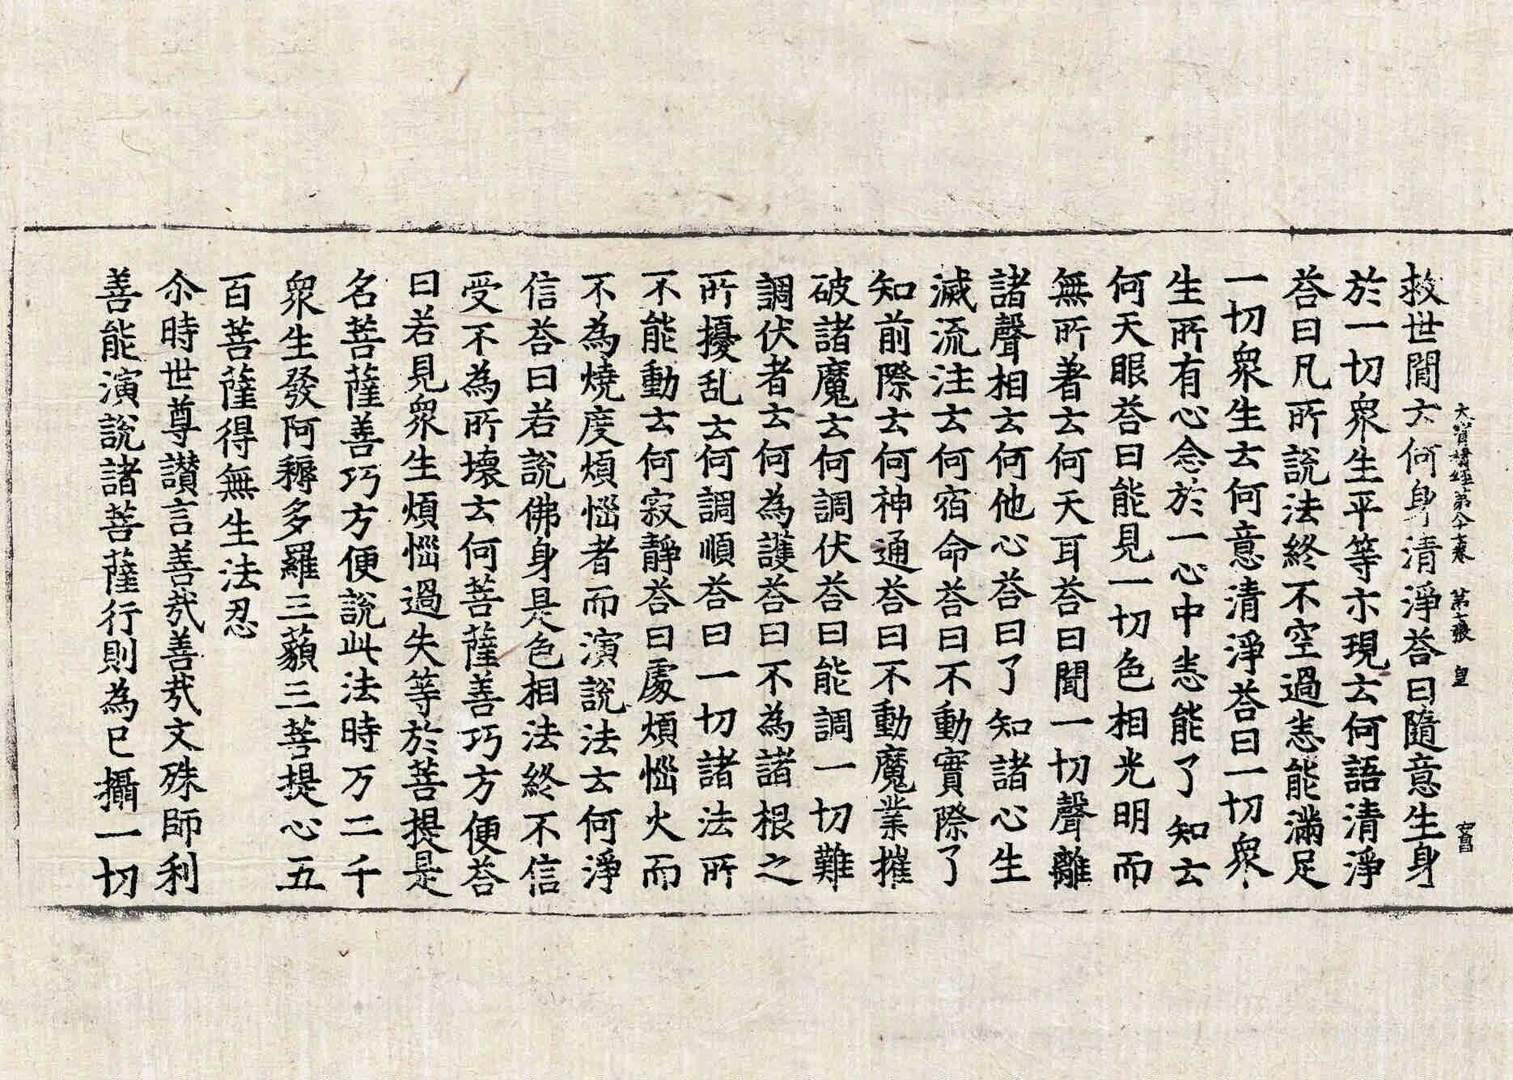 大寶積經第八十七卷 皇
救世間云何身清淨荅曰隨意生身
於一切衆生平等亦現云何語清淨
荅曰凡所說法終不空過悉能滿足
一切衆生云何意清淨荅曰一切衆
生所有心念於一心中悉能了知云
何天眼荅曰能見一切色相光明而
無所著云何天耳荅曰聞一切聲離
諸聲相云何他心荅曰了知諸心生
滅流注云何宿命荅曰不動實際了
知前際云何神通荅曰不動魔業摧
破諸魔云何調伏荅曰能調一切難
調伏者云何為護荅曰不為諸根之
所擾乱云何調順荅曰一切諸法所
不能動云何寂靜荅曰處煩惱火而
不為燒度煩惱者而演說法云何淨
信荅曰若說佛身是色相法終不信
受不為所壞云何菩薩善巧方便荅
曰若見衆生煩惱過失等於菩提是
名菩薩善巧方便說此法時万二千
衆生發阿耨多羅三藐三菩提心五
百菩薩得無生法忍
尒時世尊讚言善哉善哉文殊師利
善能演說諸菩薩行則為已攝一切